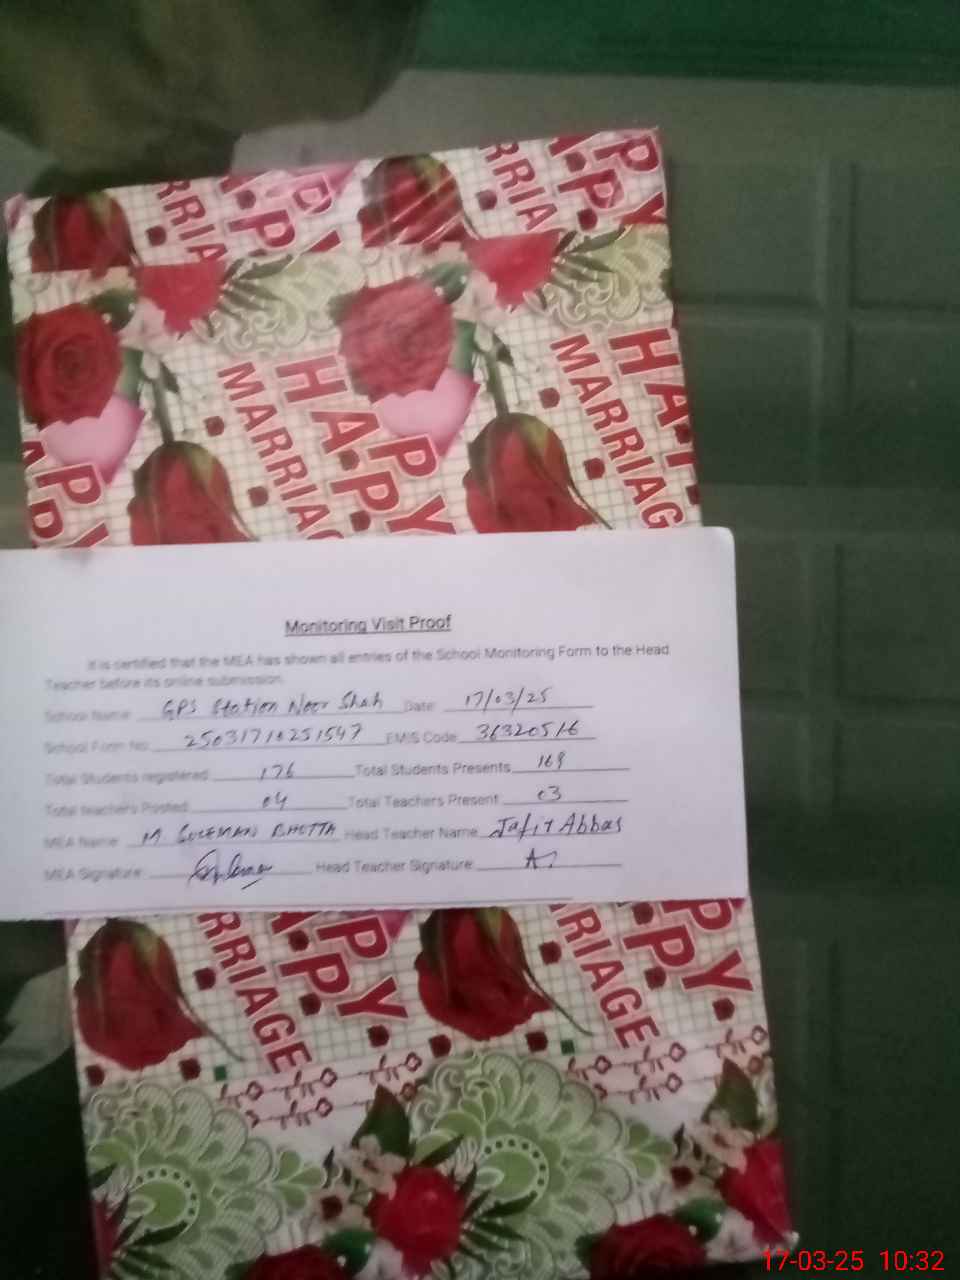 HAPPY MARRIAGE
HAPPY MARRIAGE
Monitoring Visit Proof
It is certified that the MEA has shown all entries of the School Monitoring Form to the Head
Teacher before its online submission.
School Name: GPS Station Noor Shah Date: 17/03/25
School Form No: EMIS Code: 36320516
Total Students registered: 176 Total Students Presents
Total teachers Posted: 04 Total Teachers Present: 03
MEA Name: M Head Teacher Name: Abbas
MEA Signature: Head Teacher Signature:
RRIAGE APPY RRIAGE APPY
17-03-25 10:32